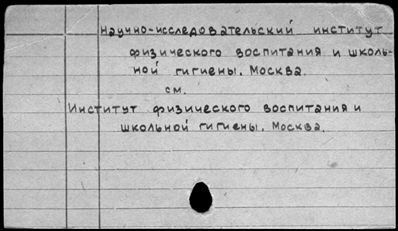 Научно-исследовательский институт
физического воспитания и школь-
ной гигиены. Москва.
см.
Институт физического воспитания и
школьной гигиены. Москва.